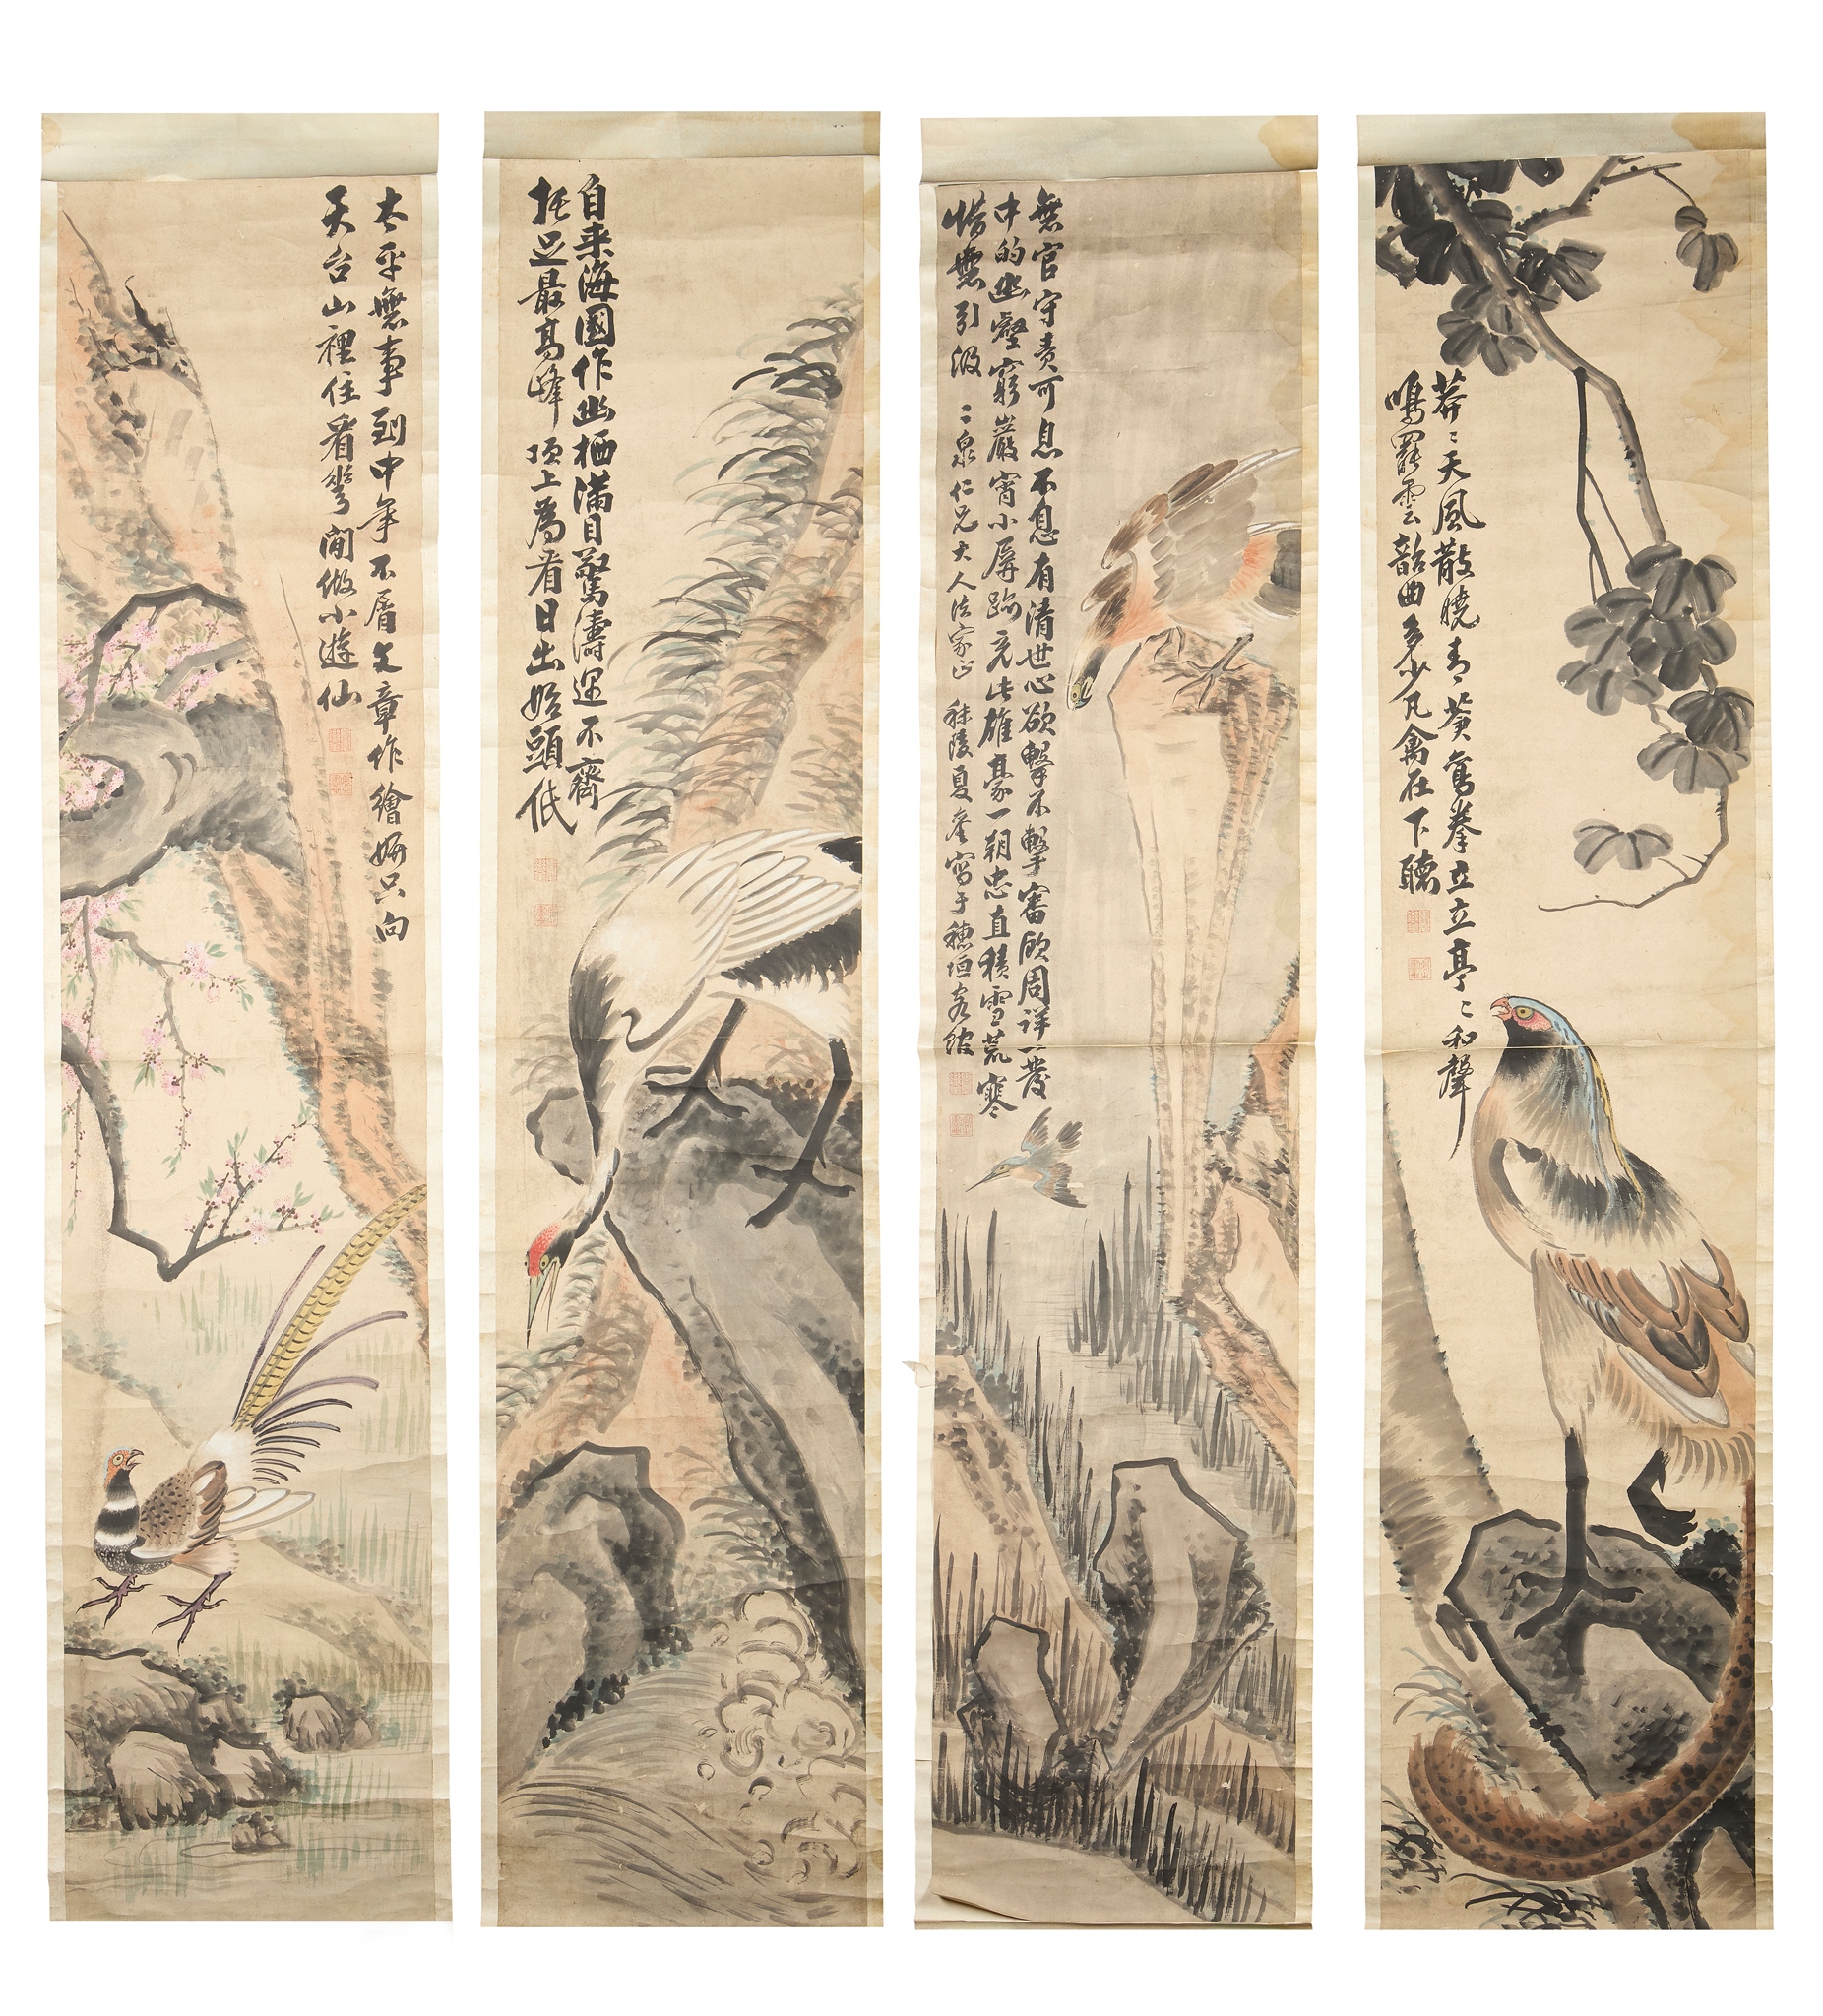 莽〻天風散曉青蒼鸞拳立立亭〻和聲
鳴罷雲韶曲多少凡禽在下聽
無官守責可息不息有清世心欲擊不擊審顧周詳一發
中的幽壑窮巖宵小屏跡充此雄豪一朝忠直積雪荒寒
惜無引汲 二泉仁兄大人法家正 秣陵夏 寫于穗垣客館
自來海國作幽栖滿目驚濤 不齊
托足最高峰頂上為看日出始頭低
太平無事到中年不屑文章作繪妍只向
天台山裡住看花間做小遊仙